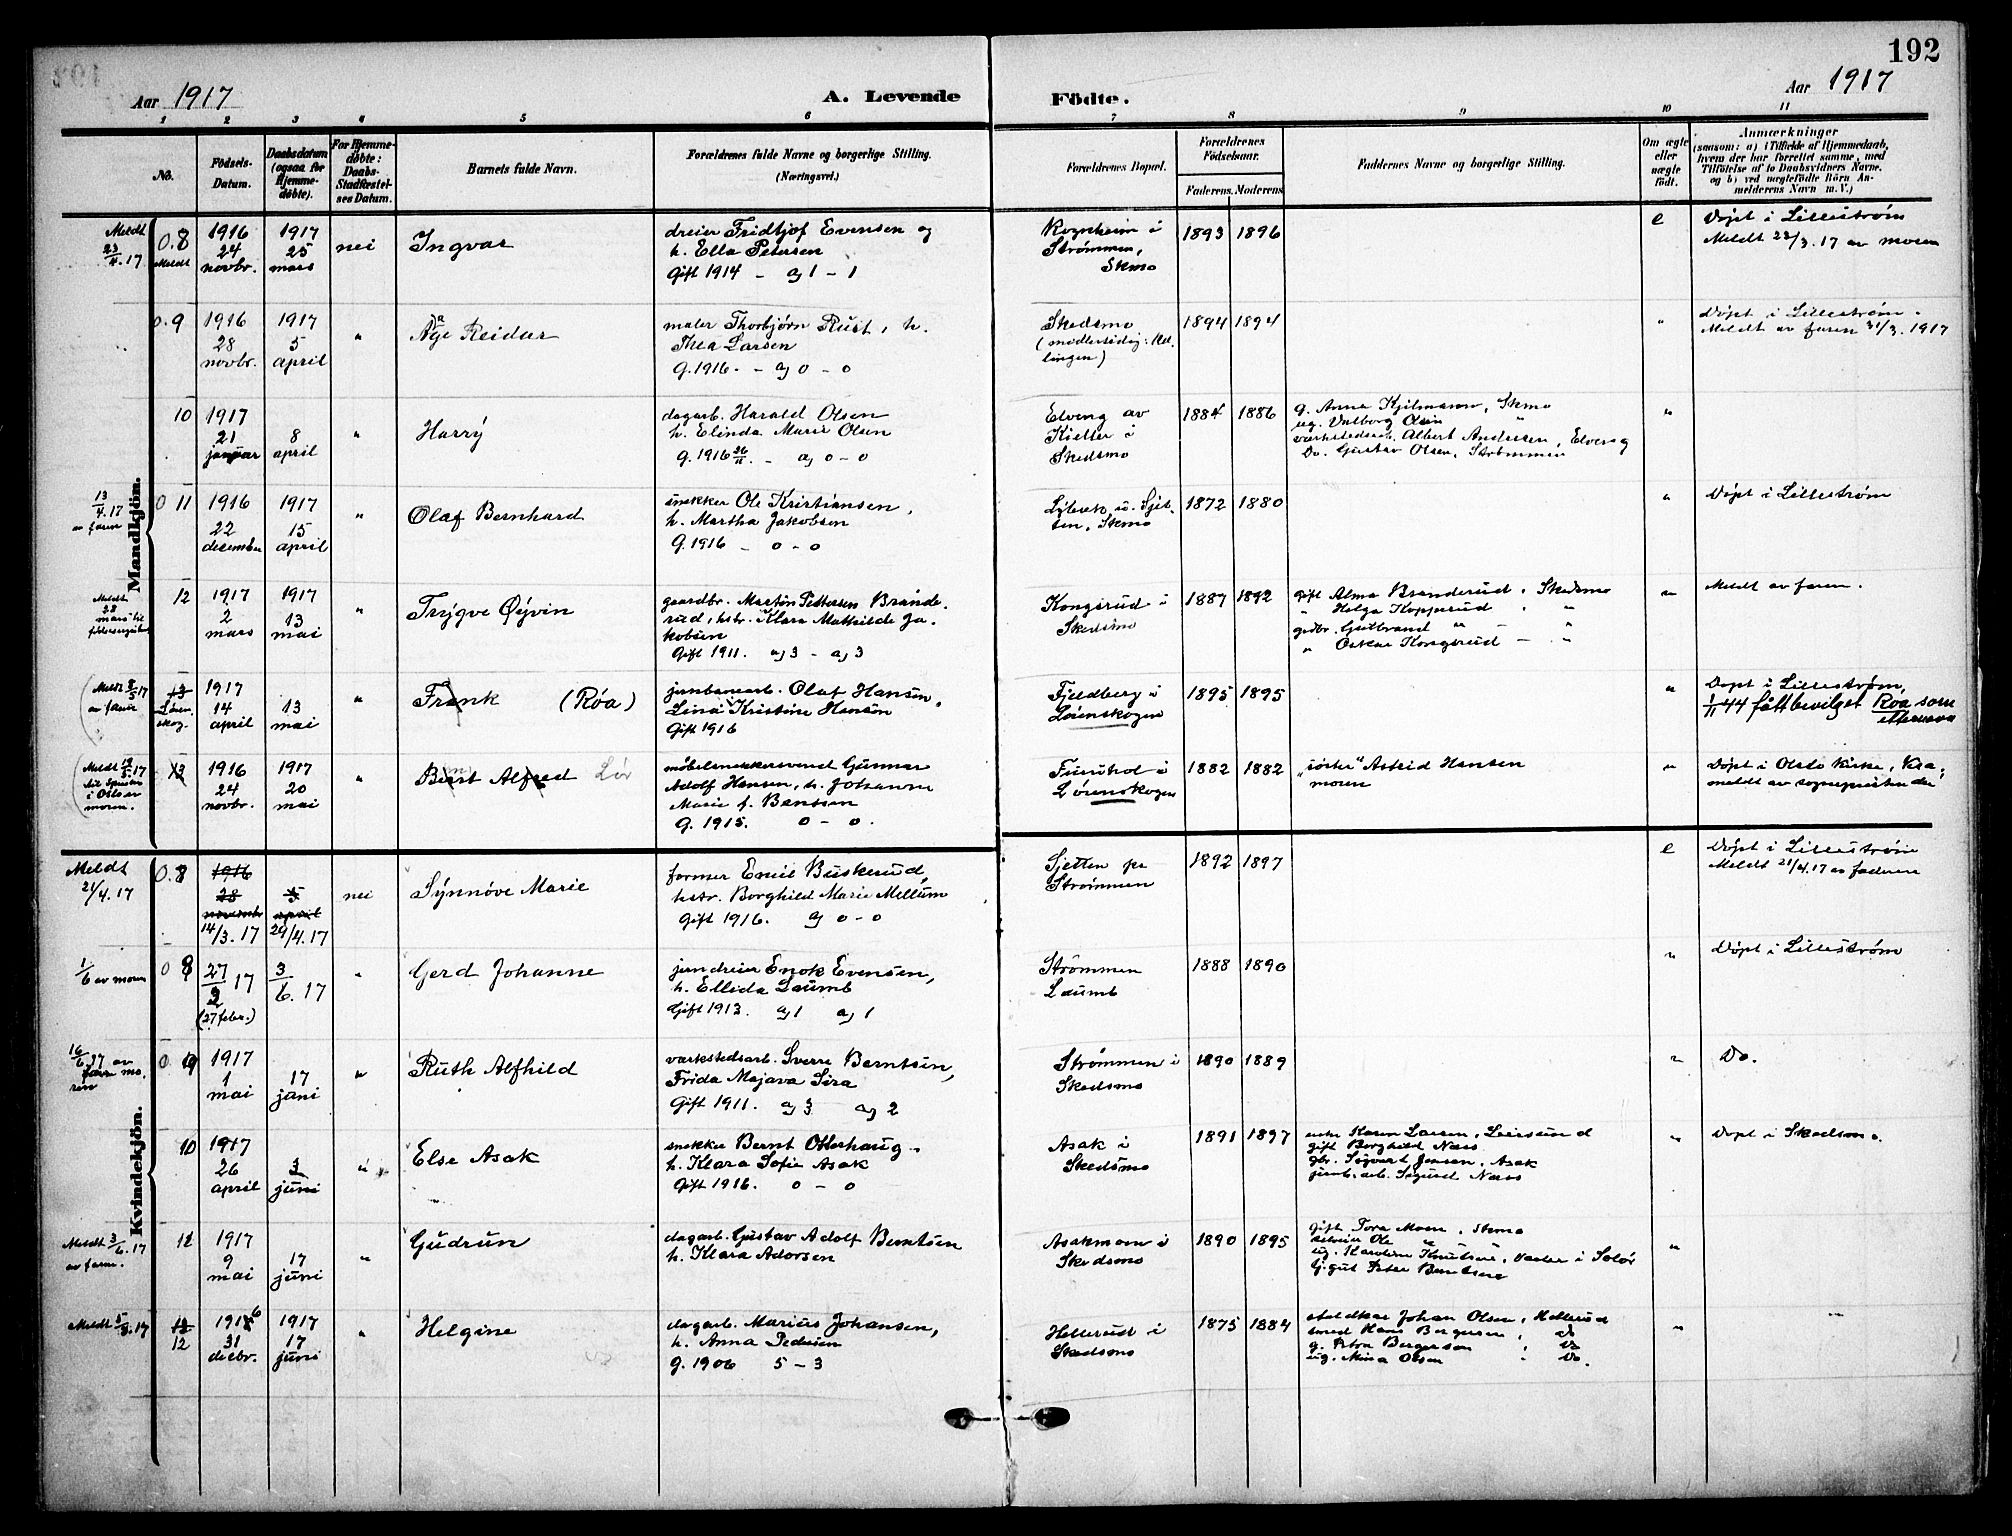 192
Aar 1917
A. Levende
Födte.
Aar 1917
1 2 3 4 5 6 7 8 9 10 11
No.
Födsels-Datum.
Daabsdatum (ogsaa for Hjemme-döbte).
For Hjemme-döbte: Daabs-Stadfæstel-ses Datum.
Barnets fulde Navn.
Forældrenes fulde Navne og borgerlige Stilling.
(Næringsvei.)
Forældrenes Bopæl.
Forældrenes Födselsaar.
Faderens. Moderens.
Faddernes Navne og borgerlige Stilling.
Om ægte eller uægte født.
Anmærkninger
(saasom: a) i Tilfælde af Hjemmedaab,
hvem der har forrettet samme, med
Tilföielse af to Daabsvidners Navne.
og b) ved uægtefödte Börn An-
melderens Navn m. V.)
Mandkjön.
Meldt 23/4.17
0.8
Meldt
1916 24 novbr.
1917 25 mars
nei
Ingvar
dreier Fridtjof Evensen og
h. Ella Petersen
Gift 1914 - ag 1 - 1
Rognheim i
Strømmen,
Skmo
1893 1896
e
Døpt i Lillestrøm
Meldt 23/3.17 av moren
0.9
1916 28 novbr.
1917 5 april
"
Age Reidar
maler Thorbjørn Rust, h.
Thea Larsen
g. 1916. - ag 0 - 0
Skedsmo
1894 1894
"
Døpt i Lillestrøm.
Meldt av faren 31/3.1917
10
1917 21 januar
8 april
"
Harry
dagarb. Harald Olsen
h. Elinda Marie Olsen
g. 1916 26/11. - ag 0 - 0
Elveng av
Kjeller i
Skedsmo
1884 1886
g. Anna Kjilmann, Skmo
ug. Valborg Olsen "
værkstedsarb. Albert Andersen, Elveng
Do. Gustav Olsen, Strømmen
"
13/4.17
av faren
0 11
1916 22 desember
1917 15 april
"
Olaf Bernhard
snekker Ole Kristiansen,
h. Martha Jakobsen
G. 1916 - 0 - 0
Skmo
1872 1880
"
Døpt i Lillestrøm
Meldt
28
mars
12
1917 2 mars
1917 13 mai
"
Trygve Øyvin
gaardbr. Martin Pettersen Brande-
rud, hstr. Klara Mathilde Ja-
kobsen
Gift 1911. ag 3 - ag 3
Kongsrud i
Skedsmo
1887 1892
gift Alma Branderud, Skedsmo
" Helga Kopperud "
grdbr. Gulbrand " "
" Oskar Kongsrud - "
"
Meldt av faren.
(Meldt 8/5 17
av faren
13
Løren-
skog.
1917 14 april
13 mai
"
Frank (Røa)
jernbanearb. Olaf Hansen,
Lina Kristine Hansen
Gift 1916
Fjeldberg i
Lørenskogen
1895 1895
"
Døpt i Lillestrøm,
1/11 44 fått bevilget Roa som
etternavn
(Meldt 12/5.17
i Oslo av
moren.
13
1916 24 novbr.
1917 20 mai
"
Bernt Alfred Lør
møbelsnekkersvend Gunnar
Adolf Hansen, h. Johanne
Marie f. Bentsen
G. 1915. 0 - 0.
Furuhol i
Lørenskogen
1882 1882
"søster" Astrid Hansen
moren
"
Døpt i Oslo Kirke, Kra,
meldt av sognepresten der
Kvindekjön.
Meldt
21/4.17
0.8
1916 28 novembr
14/3.17
5 april
29/4.17
nei
Synnöve Marie
former Emil Buskerud,
hstr. Borghild Marie Mellum
Gift 1916. ag 0 - 0
Sjetten pr
Strømmen
1892 1897
e
Døpt i Lillestrøm
Meldt 21/4.17 av faderen
1/6 av moren
0 8
27/2 17
(27 febr.)
3/6.17
"
Gerd Johanne
jerndreier Enok Evensen,
h. Ellida Laumb
Gift 1913. ag 1 ag 1
Strømmen
Laumb
1888 1890
"
Døpt i Lillestrøm
16/6.17 av
0 9
1917 1 mai
17 juni
"
Ruth Alfhild
værkstedsarb. Sverre Berntsen,
Frida Majava Sira
Gift 1911. ag 3 ag 2
Strømmen i
Skedsmo
1890 1889
"
Do.
10
1917 26 april
3 juni
"
Else Asak
snekker Bernt Otterhaug -
h. Klara Sofie Asak
Gift 1916. 0 - 0
Asak i
Skedsmo
1891 1897
enke Karen Larsen, Leirsund
gift Borghild Næss
gbr. Sigvart Jensen, Asak
jernb. arb. Sigurd Næss
"
Døpt i Skedsmo.
Meldt 3/6.17
av faren.
11
1917 9 mai
17 juni
"
Gudrun
dagarb. Gustav Adolf Berntsen
h. Klara Adorsen
Asakmoen i
Skedsmo
1890 1895
gift Tora Moen, Skmo
Ole "
ug. Karoline Knutsen, Vaaler i Solør
Ugift Peter Berntsen
"
Meldt 5/3.17
13
12
1916 31 decbr.
1917 17 juni
"
Helgine
dagarb. Marius Johansen,
h. Anna Pedersen
g. 1906 5 - 3
Hellerud i
Skedsmo
1875 1884
Johan Olsen, Hellerud
smed Hans Bergersen, Do
g. Petra Bergersen, Do
ug. Mina Olsen, Do.
"